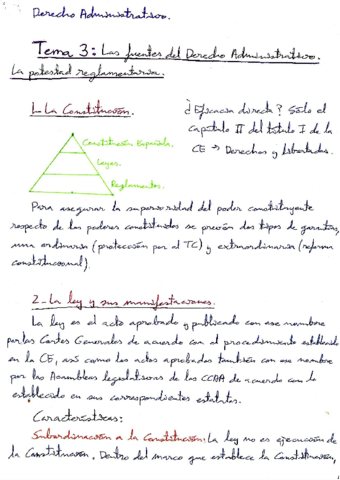 Derecho Administrativo.
Tema 3: Las fuentes del Derecho Administrativo.
La potestad reglamentaria.
1-La Constitución.
Constitución Española.
Leyes.
Reglamentos.
¿Eficacia directa? Sólo el
capítulo II del título I de la
CE → Derechos y libertades.
Para asegurar la superioridad del poder constituyente
respecto de los poderes constituidos se prevén dos tipos de garantías,
una ordinaria (protección por el TC) y extraordinaria (reforma
constitucional).
2-La ley y sus manifestaciones.
La ley es el acto aprobado y publicado con ese nombre
por las Cortes Generales de acuerdo con el procedimiento establecido
en la CE, así como los actos aprobados también con ese nombre
por las Asambleas legislativas de las CCAA de acuerdo con lo
establecido en sus correspondientes estatutos.
Características:
Subordinación a la Constitución: La ley no es ejecución de
la Constitución. Dentro del marco que establece la Constitución,